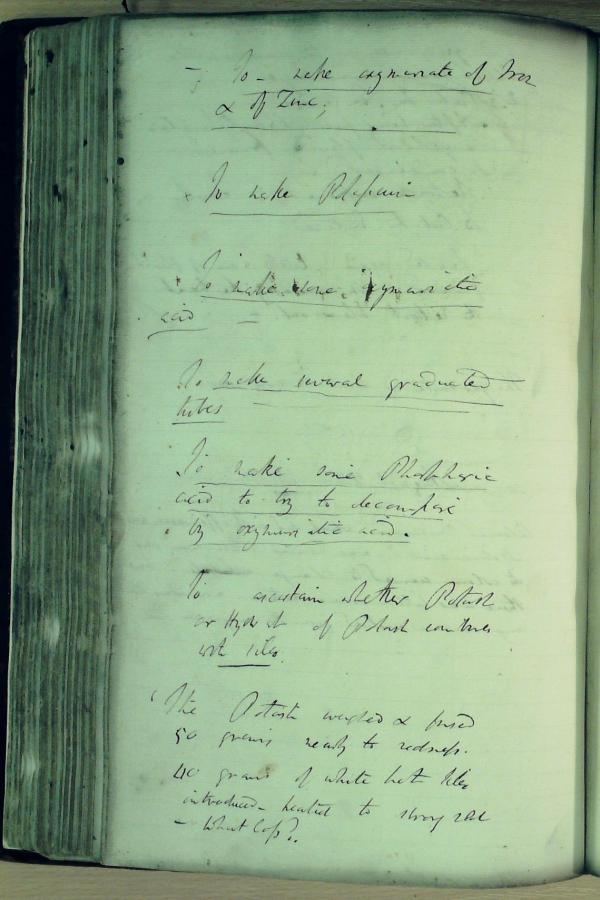 - To - make oxymuriate of Iron
& of Zinc;
To make Potassium
To make some oxymuriatic
acid
To make several graduated
tubes
To make some Phosphoric
acid to try to decompose
by oxymuriatic acid.
To ascertain whether Potash
or Hydrat of Potash combines
with silex.
The Potash weighed & fused
50 grains nearly to redness.
40 grains of white hot silex
introduced - heated to strong red
- What loss?.